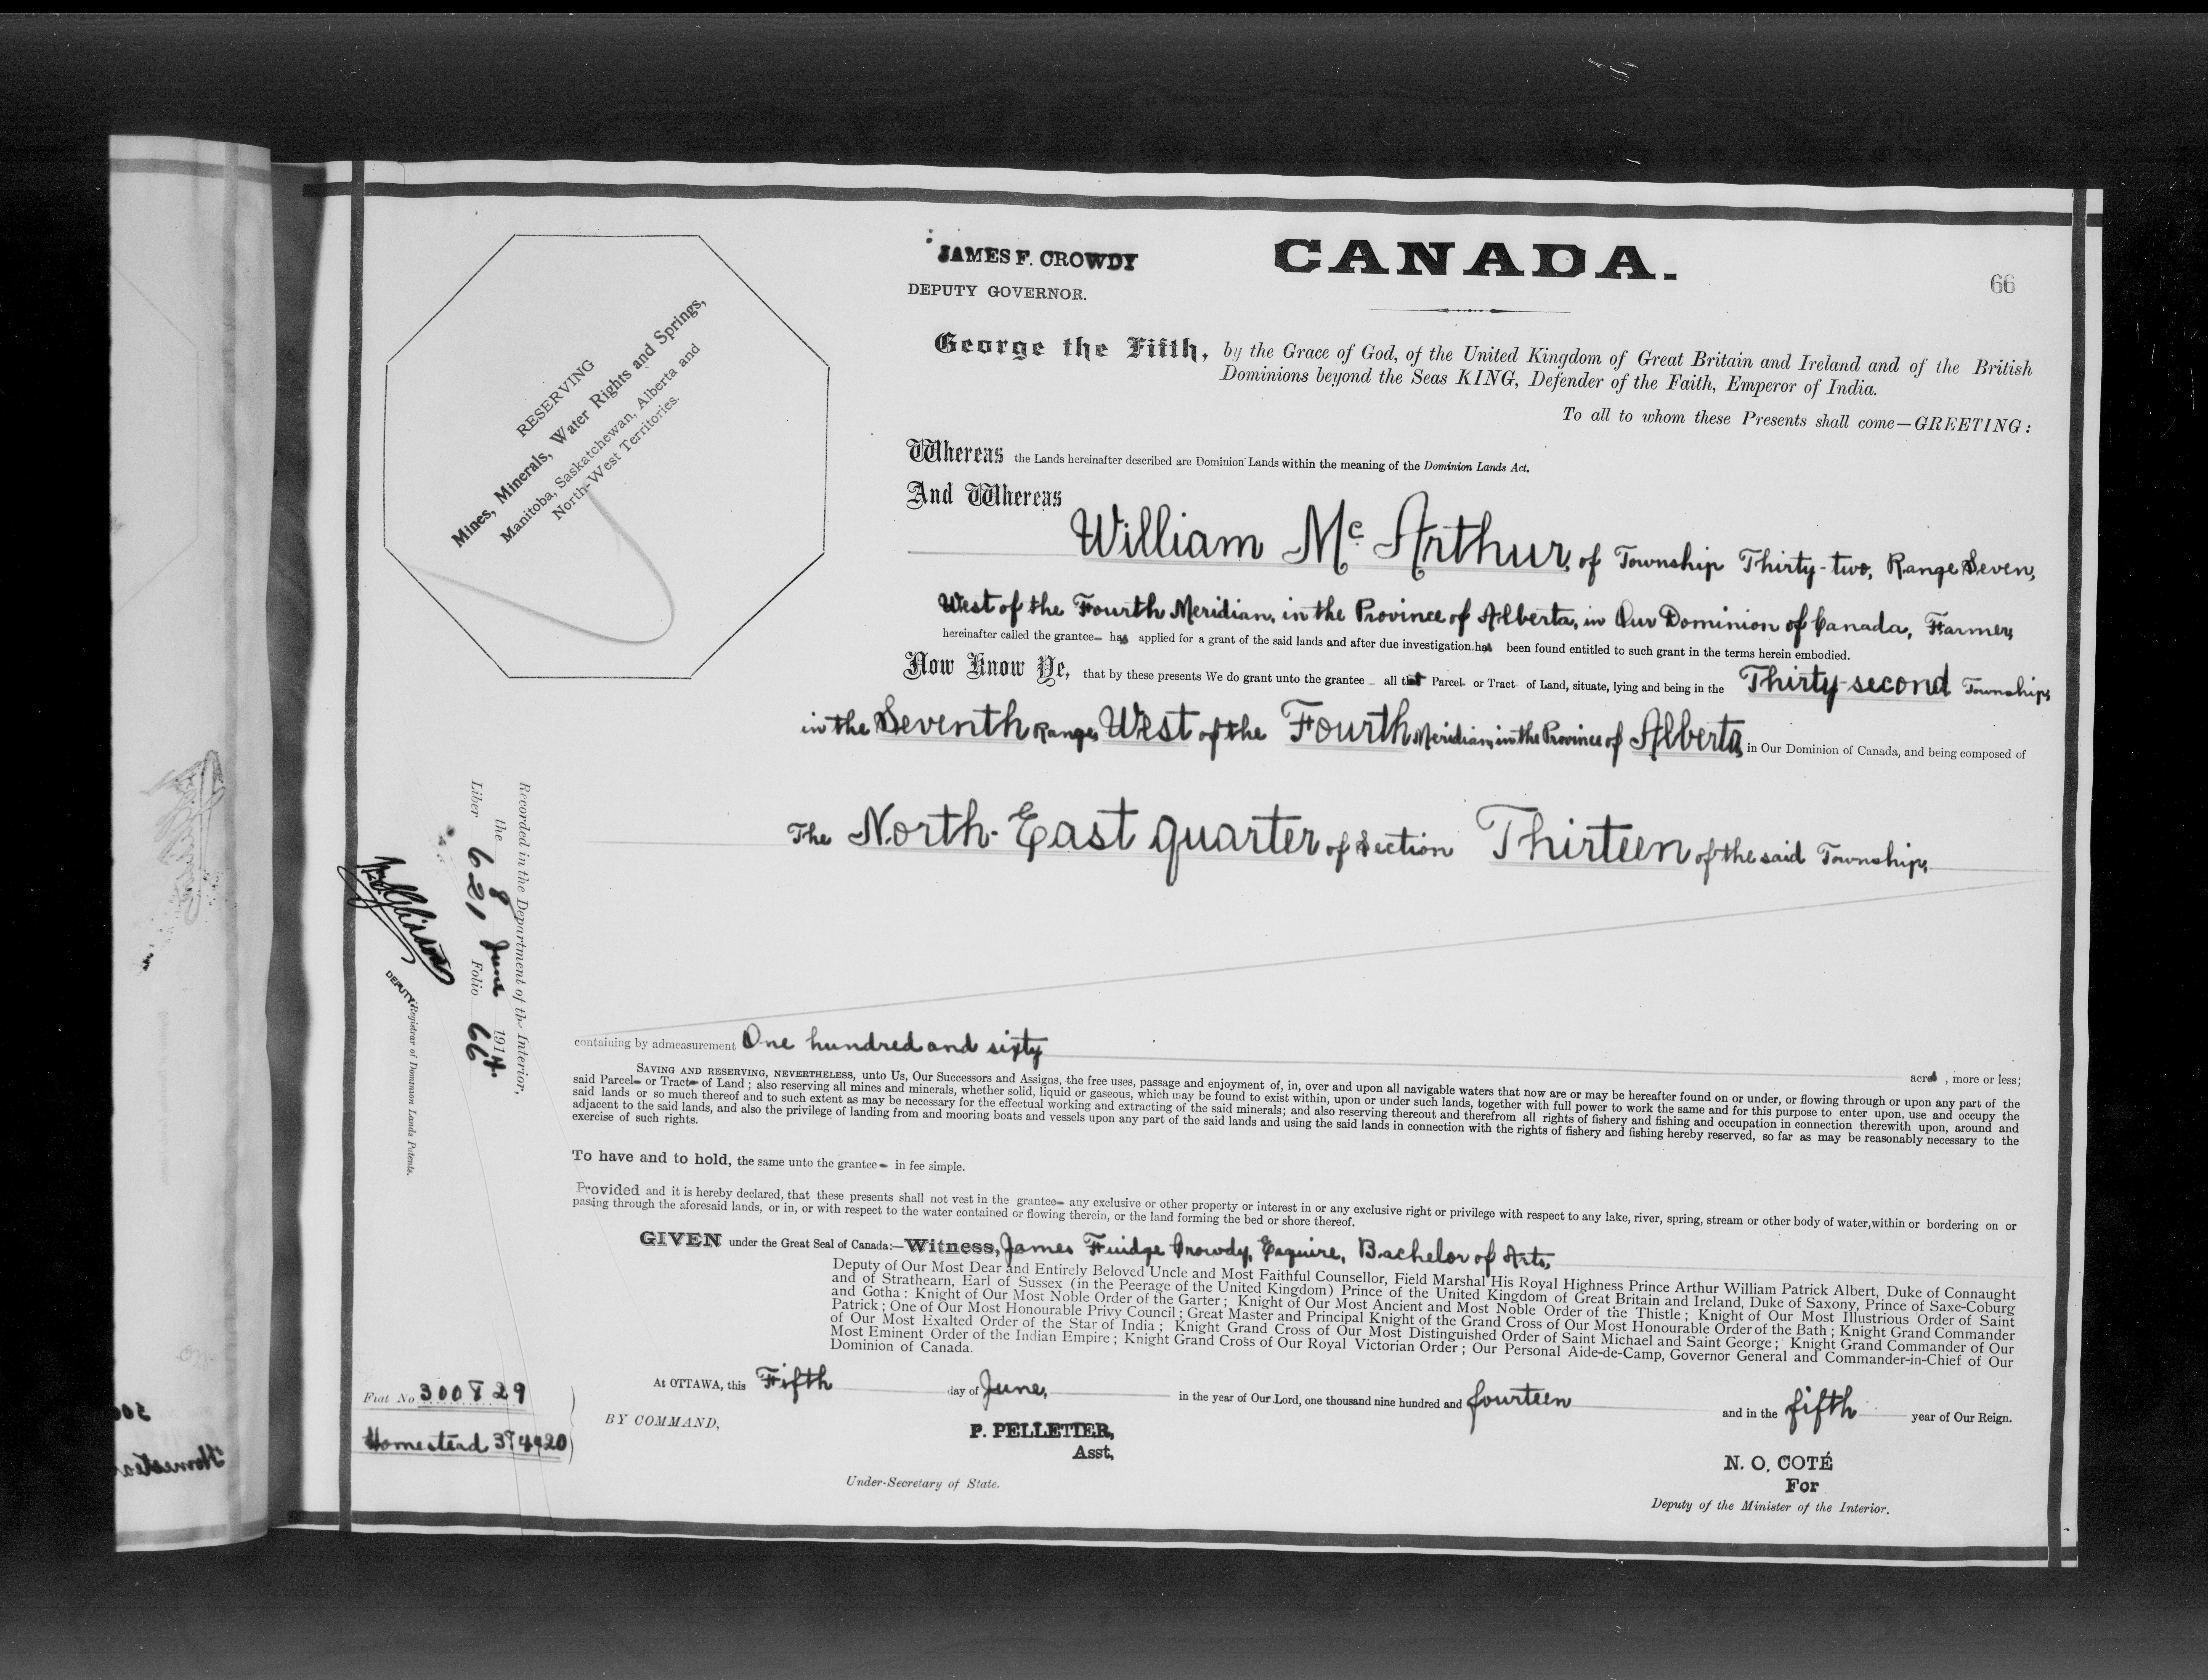 JAMES F. CROWDY
DEPUTY GOVERNOR.
CANADA.
66
RESERVING
Mines, Minerals, Water Rights and Springs,
Manitoba, Saskatchewan, Alberta and
North-West Territories.
George the Fifth, by the Grace of God, of the United Kingdom of Great Britain and Ireland and of the British
Dominions beyond the Seas KING, Defender of the Faith, Emperor of India.
To all to whom these Presents shall come—GREETING:
Whereas the Lands hereinafter described are Dominion Lands within the meaning of the Dominion Lands Act.
And Whereas
William Mc Arthur, of Township Thirty-two, Range Seven,
West of the Fourth Meridian, in the Province of Alberta, in Our Dominion of Canada, Farmer,
hereinafter called the grantee— has applied for a grant of the said lands and after due investigation has been found entitled to such grant in the terms herein embodied.
Now Know Ye, that by these presents We do grant unto the grantee – all that Parcel- or Tract- of Land, situate, lying and being in the Thirty-second Township,
in the Seventh Range, West of the Fourth Meridian, in the Province of Alberta, in Our Dominion of Canada, and being composed of
The North-East quarter of Section Thirteen of the said Township,
Recorded in the Department of the Interior,
the 8 June 1914.
Liber 621 Folio 66
DEPUTY Registrar of Dominion Lands Patents.
containing by admeasurement One hundred and sixty acres, more or less;
SAVING AND RESERVING, NEVERTHELESS, unto Us, Our Successors and Assigns, the free uses, passage and enjoyment of, in, over and upon all navigable waters that now are or may be hereafter found on or under, or flowing through or upon any part of the
said Parcel- or Tract- of Land; also reserving all mines and minerals, whether solid, liquid or gaseous, which may be found to exist within, upon or under such lands, together with full power to work the same and for this purpose to enter upon, use and occupy the
said lands or so much thereof and to such extent as may be necessary for the effectual working and extracting of the said minerals; and also reserving thereout and therefrom all rights of fishery and fishing and occupation in connection therewith upon, around and
adjacent to the said lands, and also the privilege of landing from and mooring boats and vessels upon any part of the said lands and using the said lands in connection with the rights of fishery and fishing hereby reserved, so far as may be reasonably necessary to the
exercise of such rights.
To have and to hold, the same unto the grantee- in fee simple.
Provided and it is hereby declared, that these presents shall not vest in the grantee- any exclusive or other property or interest in or any exclusive right or privilege with respect to any lake, river, spring, stream or other body of water, within or bordering on or
pasing through the aforesaid lands, or in, or with respect to the water contained or flowing therein, or the land forming the bed or shore thereof.
GIVEN under the Great Seal of Canada:—Witness, James Fuidge Crowdy, Esquire, Bachelor of Arts,
Deputy of Our Most Dear and Entirely Beloved Uncle and Most Faithful Counsellor, Field Marshal His Royal Highness Prince Arthur William Patrick Albert, Duke of Connaught
and of Strathearn, Earl of Sussex (in the Peerage of the United Kingdom) Prince of the United Kingdom of Great Britain and Ireland, Duke of Saxony, Prince of Saxe-Coburg
and Gotha: Knight of Our Most Noble Order of the Garter; Knight of Our Most Ancient and Most Noble Order of the Thistle; Knight of Our Most Illustrious Order of Saint
Patrick; One of Our Most Honourable Privy Council; Great Master and Principal Knight of the Grand Cross of Our Most Honourable Order of the Bath; Knight Grand Commander
of Our Most Exalted Order of the Star of India; Knight Grand Cross of Our Most Distinguished Order of Saint Michael and Saint George; Knight Grand Commander of Our
Most Eminent Order of the Indian Empire; Knight Grand Cross of Our Royal Victorian Order; Our Personal Aide-de-Camp, Governor General and Commander-in-Chief of Our
Dominion of Canada.
At OTTAWA, this Fifth day of June, in the year of Our Lord, one thousand nine hundred and fourteen and in the fifth year of Our Reign.
Fiat No 300829
Homestead 374420
BY COMMAND,
P. PELLETIER,
Asst,
Under-Secretary of State.
N. O. COTÉ
For
Deputy of the Minister of the Interior.